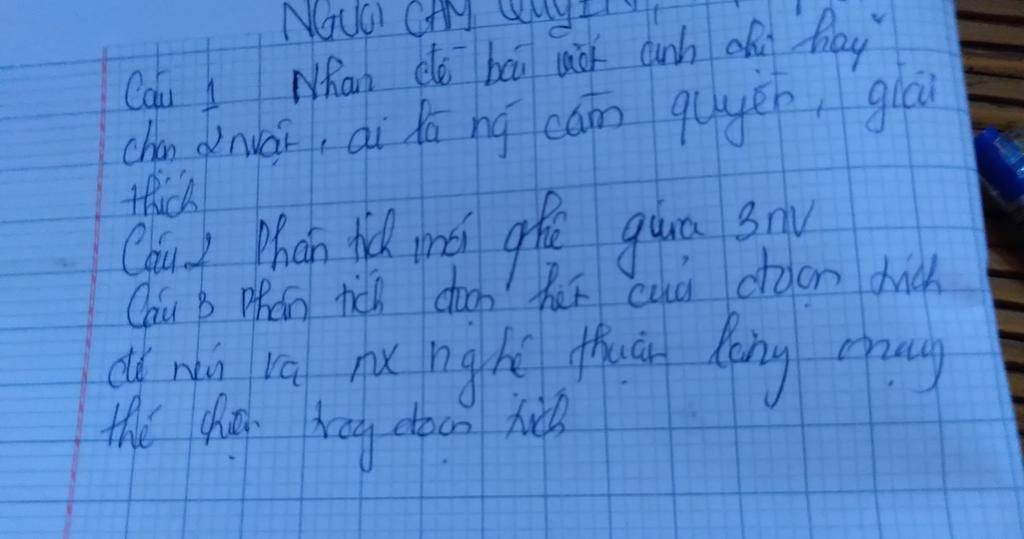 NGƯỜI CẦM QUYỀN
Câu 1 Nhan đề bài viết anh chị hãy
chọn 2 nvật, ai là ng cầm quyền, giải
thích
Câu 2 Phân tích mối qhệ giữa 3 nv
Câu 3 Phân tích đoạn kết của đoạn trích
để nên và nx nghệ thuật lãng mạng
thể hiện trog đoạn trích